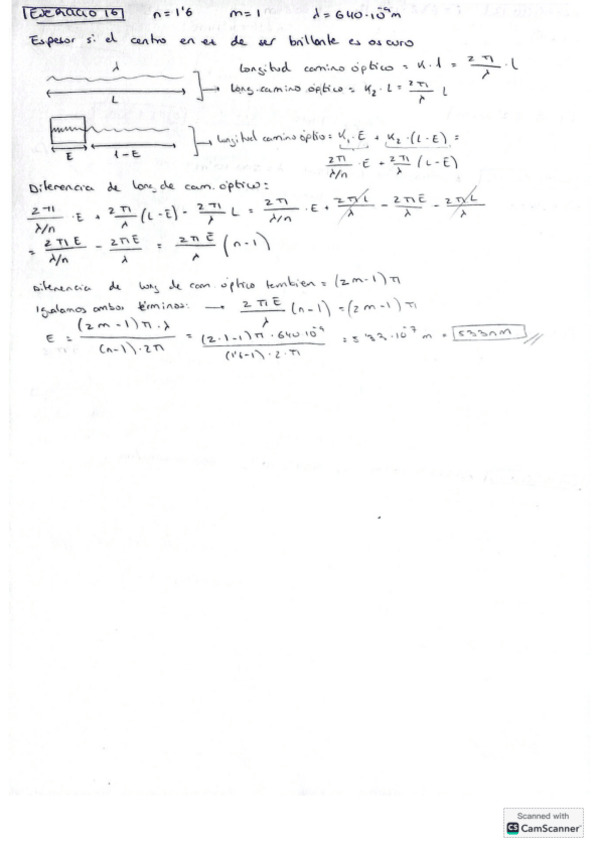 EJERCICIO 16 n = 1'6 m = 1 λ = 640·10⁻⁹m
Espesor si el centro en vez de ser brillante es oscuro
λ
Longitud camino óptico = K·l = 2π/λ · L
L
Long. camino óptico = K₂·L = 2π/λ L
E l-E
Longitud camino óptico = K₁·E + K₂·(L-E) =
2π/(λ/n) · E + 2π/λ (L-E)
Diferencia de long de cam. óptico:
2π/(λ/n) · E + 2π/λ (L-E) - 2π/λ L = 2π/(λ/n) · E + 2πL/λ - 2πE/λ - 2πL/λ
= 2πE/(λ/n) - 2πE/λ = 2πE/λ (n-1)
Diferencia de long de cam. óptico tambien = (2m-1)π
Igualamos ambos términos: → 2πE/λ (n-1) = (2m-1)π
E = (2m-1)π·λ/((n-1)·2π) = (2·1-1)π·640·10⁻⁹/((1'6-1)·2·π) = 5'33·10⁻⁷ m = 533nm
Scanned with
CS CamScanner